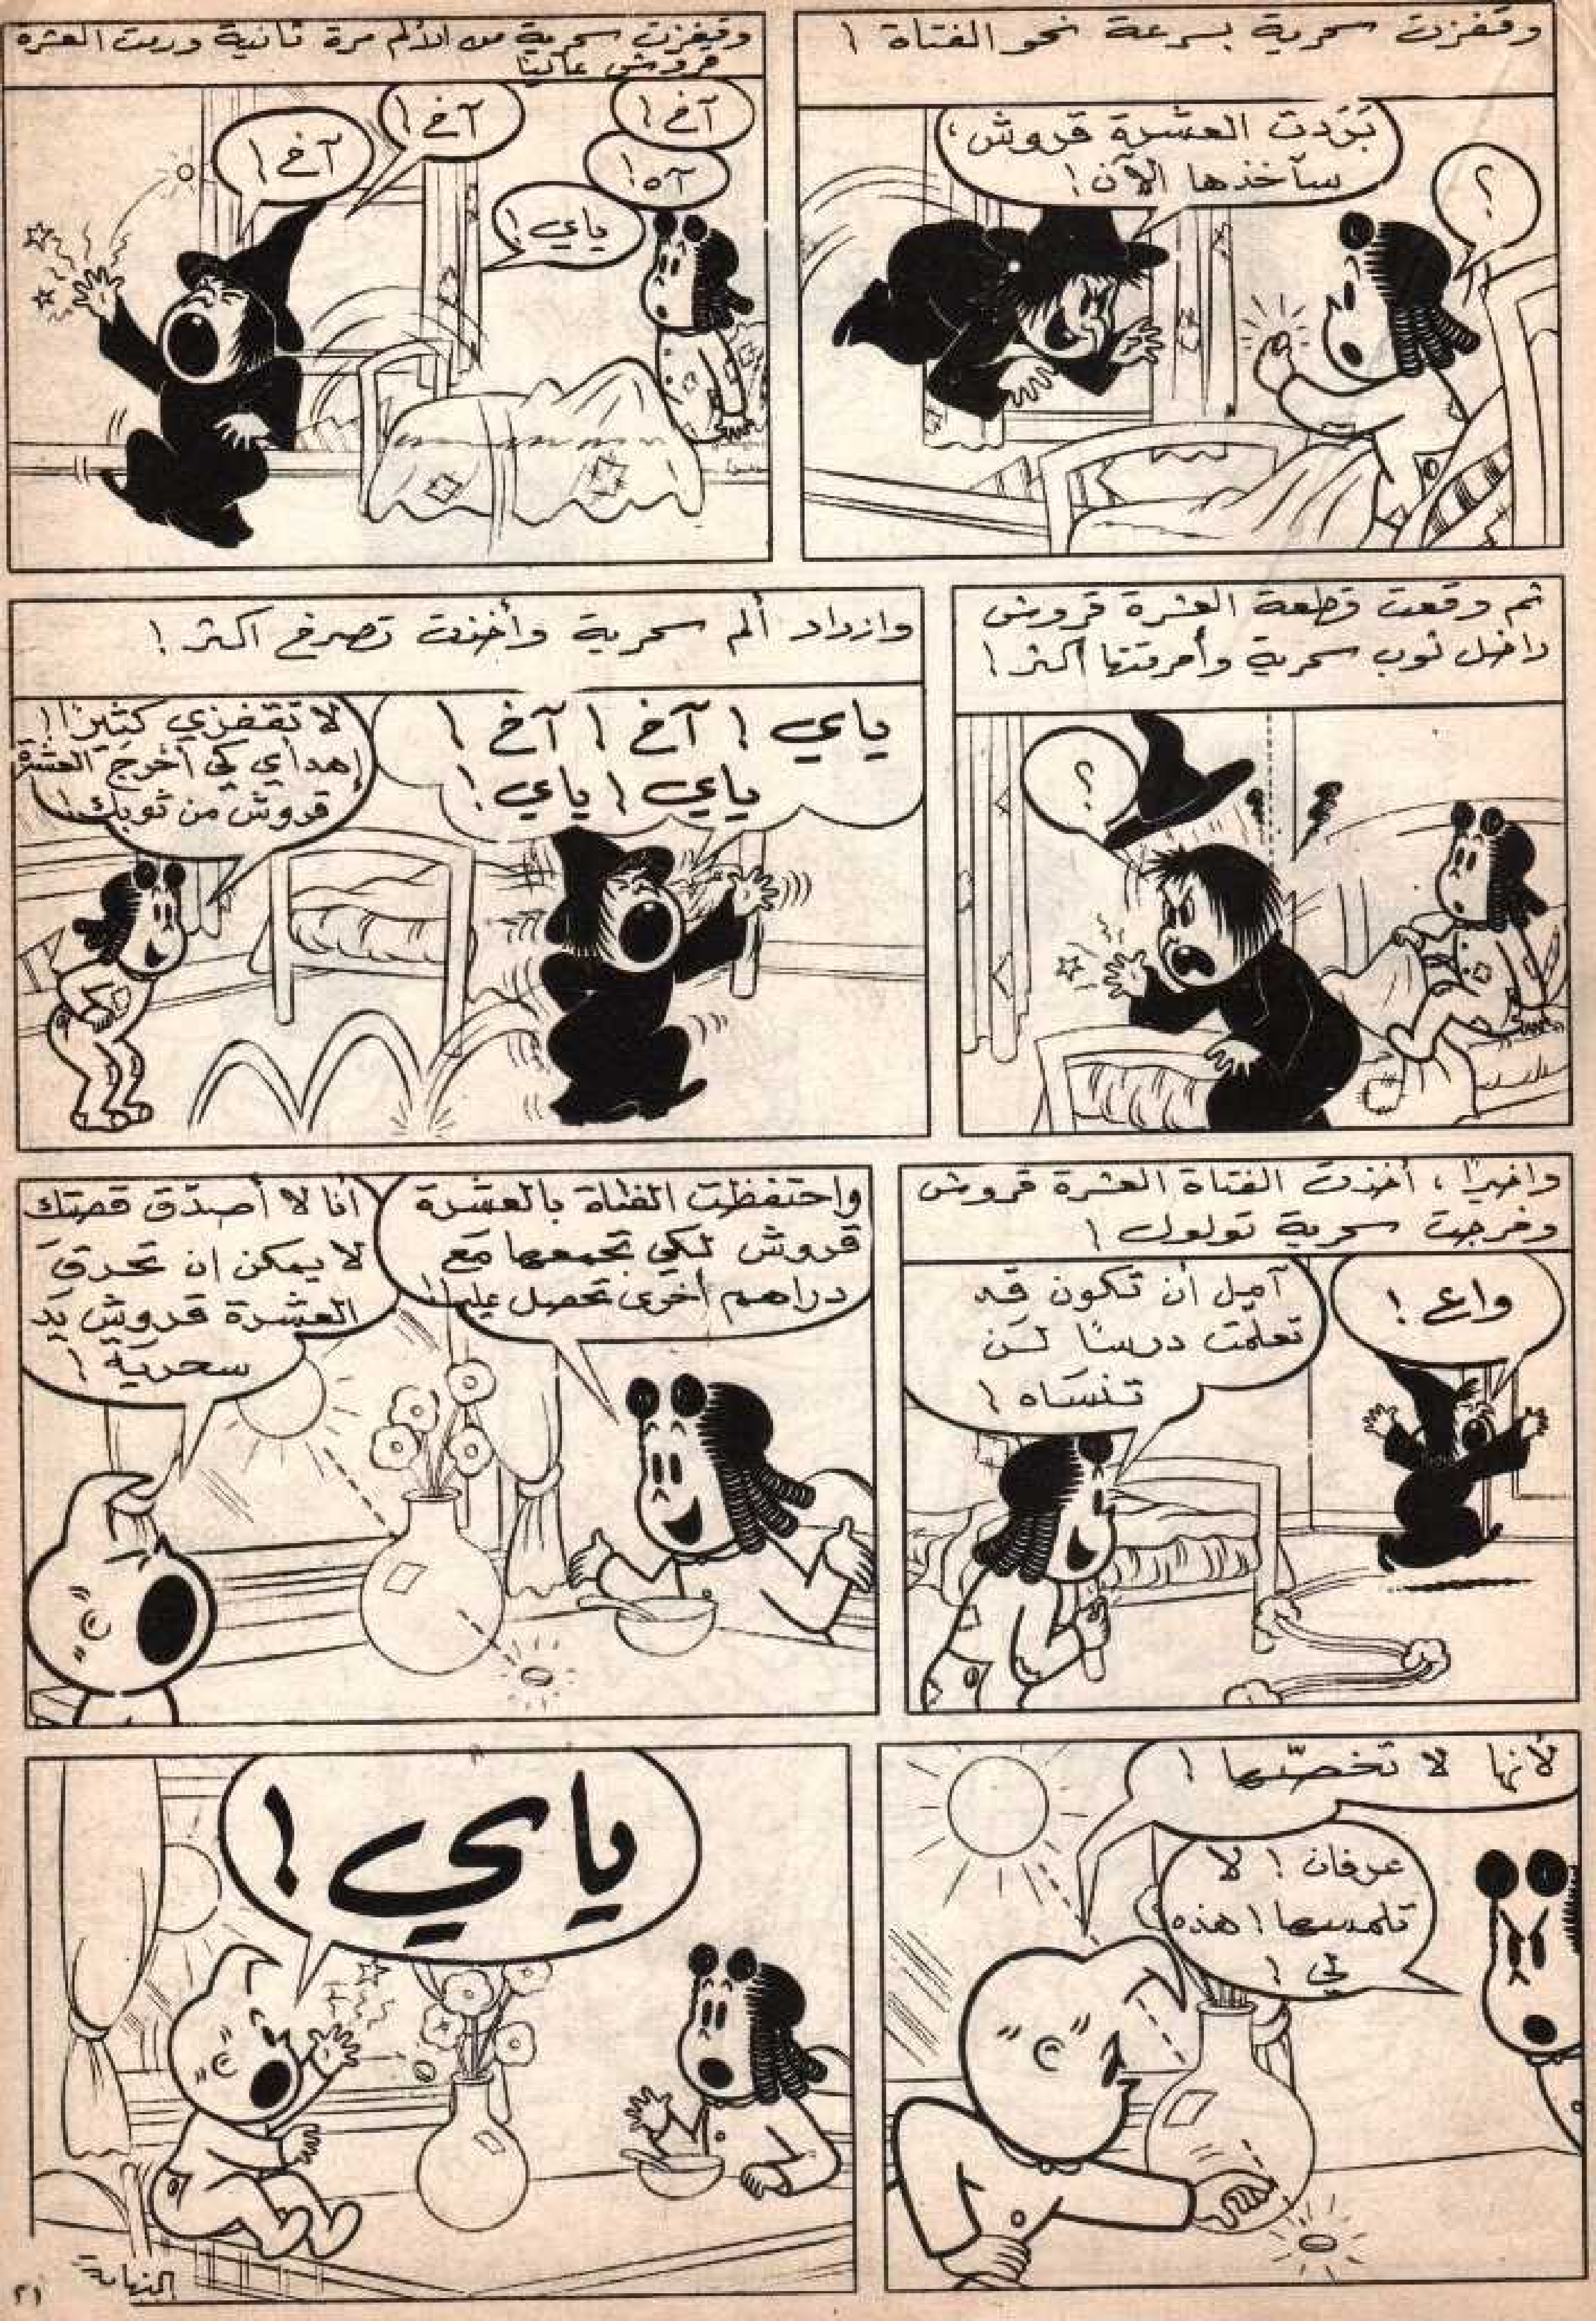 وقفزت سحرية بسرعة نحو الفتاة !
بَرَدت العشرة قروش،
سآخذها الآن!
؟
وقفزت سحرية من الألم مرة ثانية ورمت العشرة
قروش عاليًا
آخ !
آه !
ياي !
آخ !
آخ !
ثم وقعت قطعة العشرة قروش
داخل ثوب سحرية وأحرقتها أكثر !
؟
وازداد ألم سحرية وأخذت تصرخ اكثر !
ياي ! آخ ! آخ !
ياي ! ياي !
لا تقفزي كثيرًا !
إهدأي كي أخرج العشرة
قروش من ثوبك !
واخيرًا ، أخذت الفتاة العشرة قروش
وخرجت سحرية تولول !
واع !
آمل أن تكون قد
تعلّمت درسًا لن
تنساه !
واحتفظت الفتاة بالعشرة
قروش لكي تجمعها مع
دراهم أخرى تحصل عليها !
أنا لا أصدّق قصتك
لا يمكن ان تحرق
العشرة قروش يد
سحرية !
لأنها لا تخصّها !
عرفان ! لا
تلمسها ! هذه
لي !
ياي !
النهاية
٢١